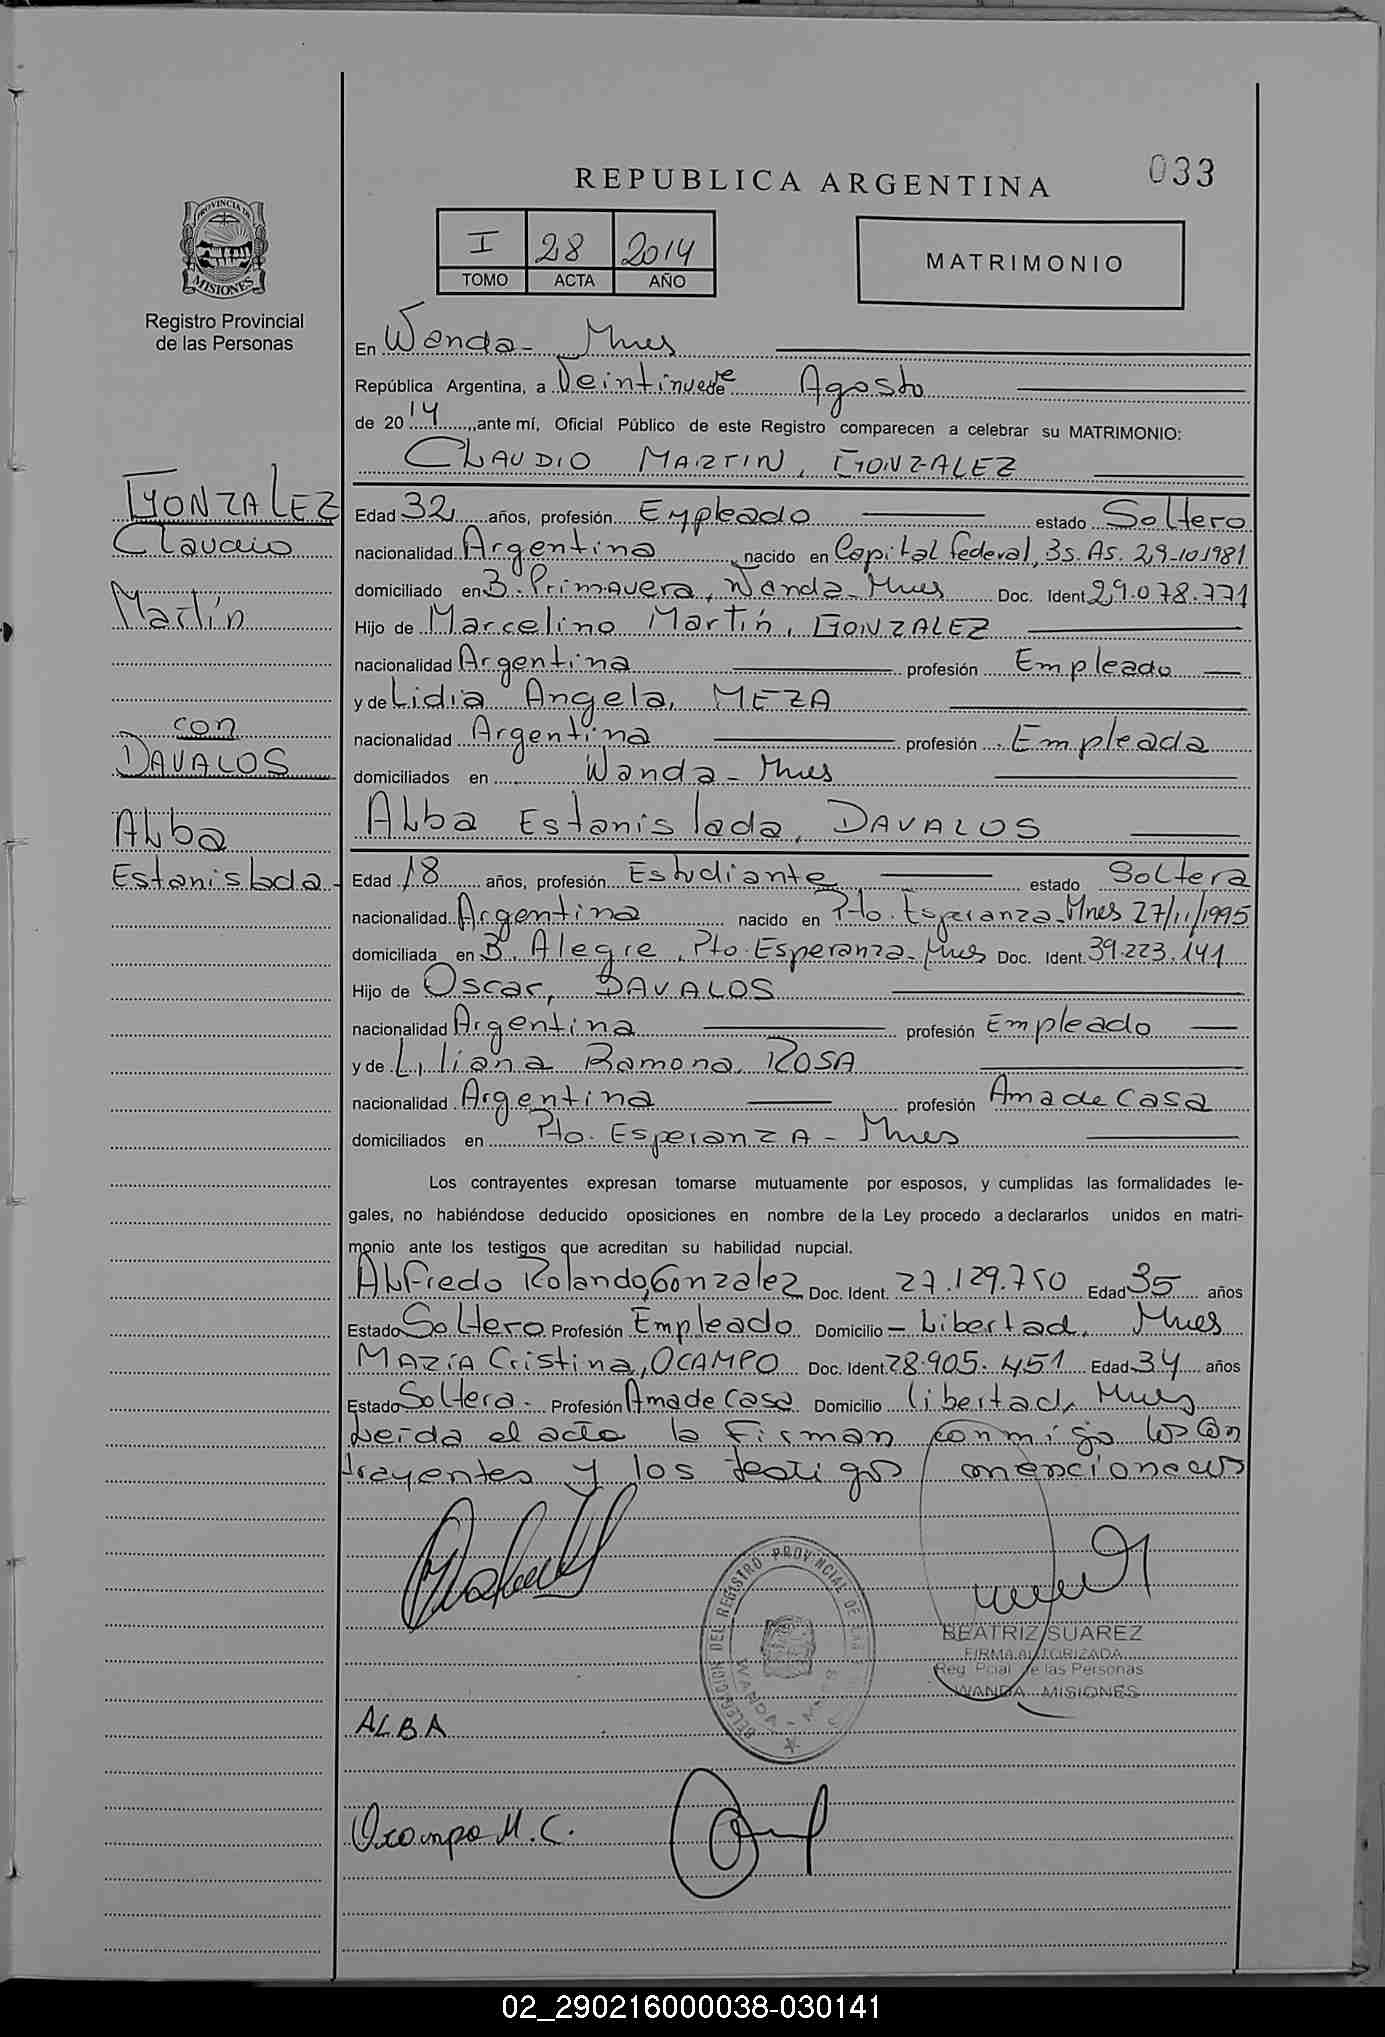 REPUBLICA ARGENTINA
033
PROVINCIA DE
MISIONES
Registro Provincial
de las Personas
I 28 2014
TOMO ACTA AÑO
MATRIMONIO
En Wanda - Mnes
República Argentina, a Veintinueve de Agosto
de 2014, ante mí, Oficial Público de este Registro comparecen a celebrar su MATRIMONIO:
CLAUDIO MARTIN, GONZALEZ
GONZALEZ
Claudio
Martín
con
DAVALOS
Alba
Estanislada
Edad 32 años, profesión Empleado estado Soltero
nacionalidad Argentina, nacido en Capital Federal, Bs. As. 29-10 1981
domiciliado en B. Primavera, Wanda - Mnes Doc. Ident 29.078.771
Hijo de Marcelino Martín, GONZALEZ
nacionalidad Argentina profesión Empleado
y de Lidia Angela, MEZA
nacionalidad Argentina profesión Empleada
domiciliados en Wanda - Mnes
Alba Estanislada, DAVALOS
Edad 18 años, profesión Estudiante estado Soltera
nacionalidad Argentina nacido en Pto. Esperanza - Mnes 27/11/1995
domiciliada en B. Alegre, Pto. Esperanza - Mnes Doc. Ident. 39.223.141
Hijo de Oscar, DAVALOS
nacionalidad Argentina profesión Empleado
y de Liliana Ramona, ROSA
nacionalidad Argentina profesión Ama de Casa
domiciliados en Pto. Esperanza - Mnes
Los contrayentes expresan tomarse mutuamente por esposos, y cumplidas las formalidades le-
gales, no habiéndose deducido oposiciones en nombre de la Ley procedo a declararlos unidos en matri-
monio ante los testigos que acreditan su habilidad nupcial.
Alfredo Rolando, Gonzalez Doc. Ident. 27.129.750 Edad 35 años
Estado Soltero Profesión Empleado Domicilio - Libertad, Mnes
María Cristina, OCAMPO Doc. Ident. 28.905.451 Edad 34 años
Estado Soltera - Profesión Ama de Casa Domicilio Libertad, Mnes
Leída el acta la firman conmigo los con
trayentes y los testigos mencionados
DELEGACION DEL REGISTRO PROVINCIAL DE LAS
WANDA - MNES
BEATRIZ SUAREZ
FIRMA AUTORIZADA
Reg. Pcial de las Personas
WANDA - MISIONES
ALBA
Ocampo M. C.
02_290216000038-030141